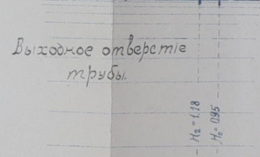 Выходное отверстіе
трубы.
H₂ = 1.18
H₁ = 0.95